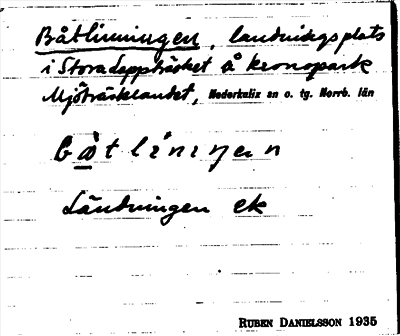 Båtlinningen, landningsplats
i Stora Lappträsket å kronopark
Mjöträsklandet, Nederkalix sn o. tg. Norrb. län
bå̀tlíniŋen
Ländningen ek
RUBEN DANIELSSON 1935